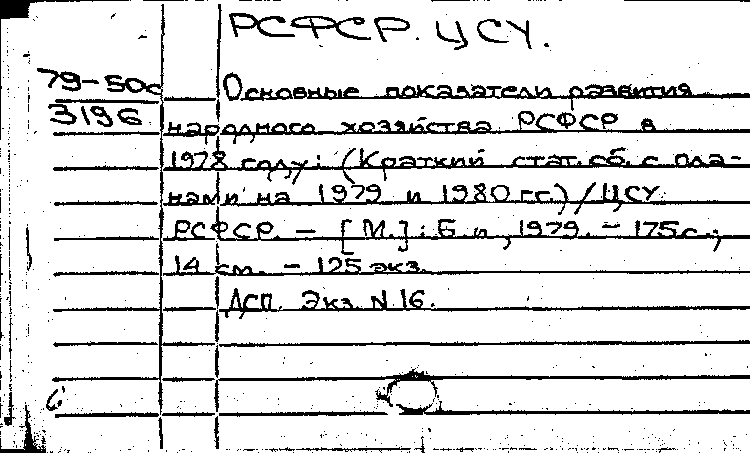 РСФСР. ЦСУ.
79-50с
3196
Основные показатели развития
народного хозяйства РСФСР в
1978 году: (Краткий стат. сб. с пла-
нами на 1979 и 1980 гг.) / ЦСУ
РСФСР. — [М.]: Б. и., 1979. — 175 с.;
14 см. — 125 экз.
ДСП. Экз. N 16.